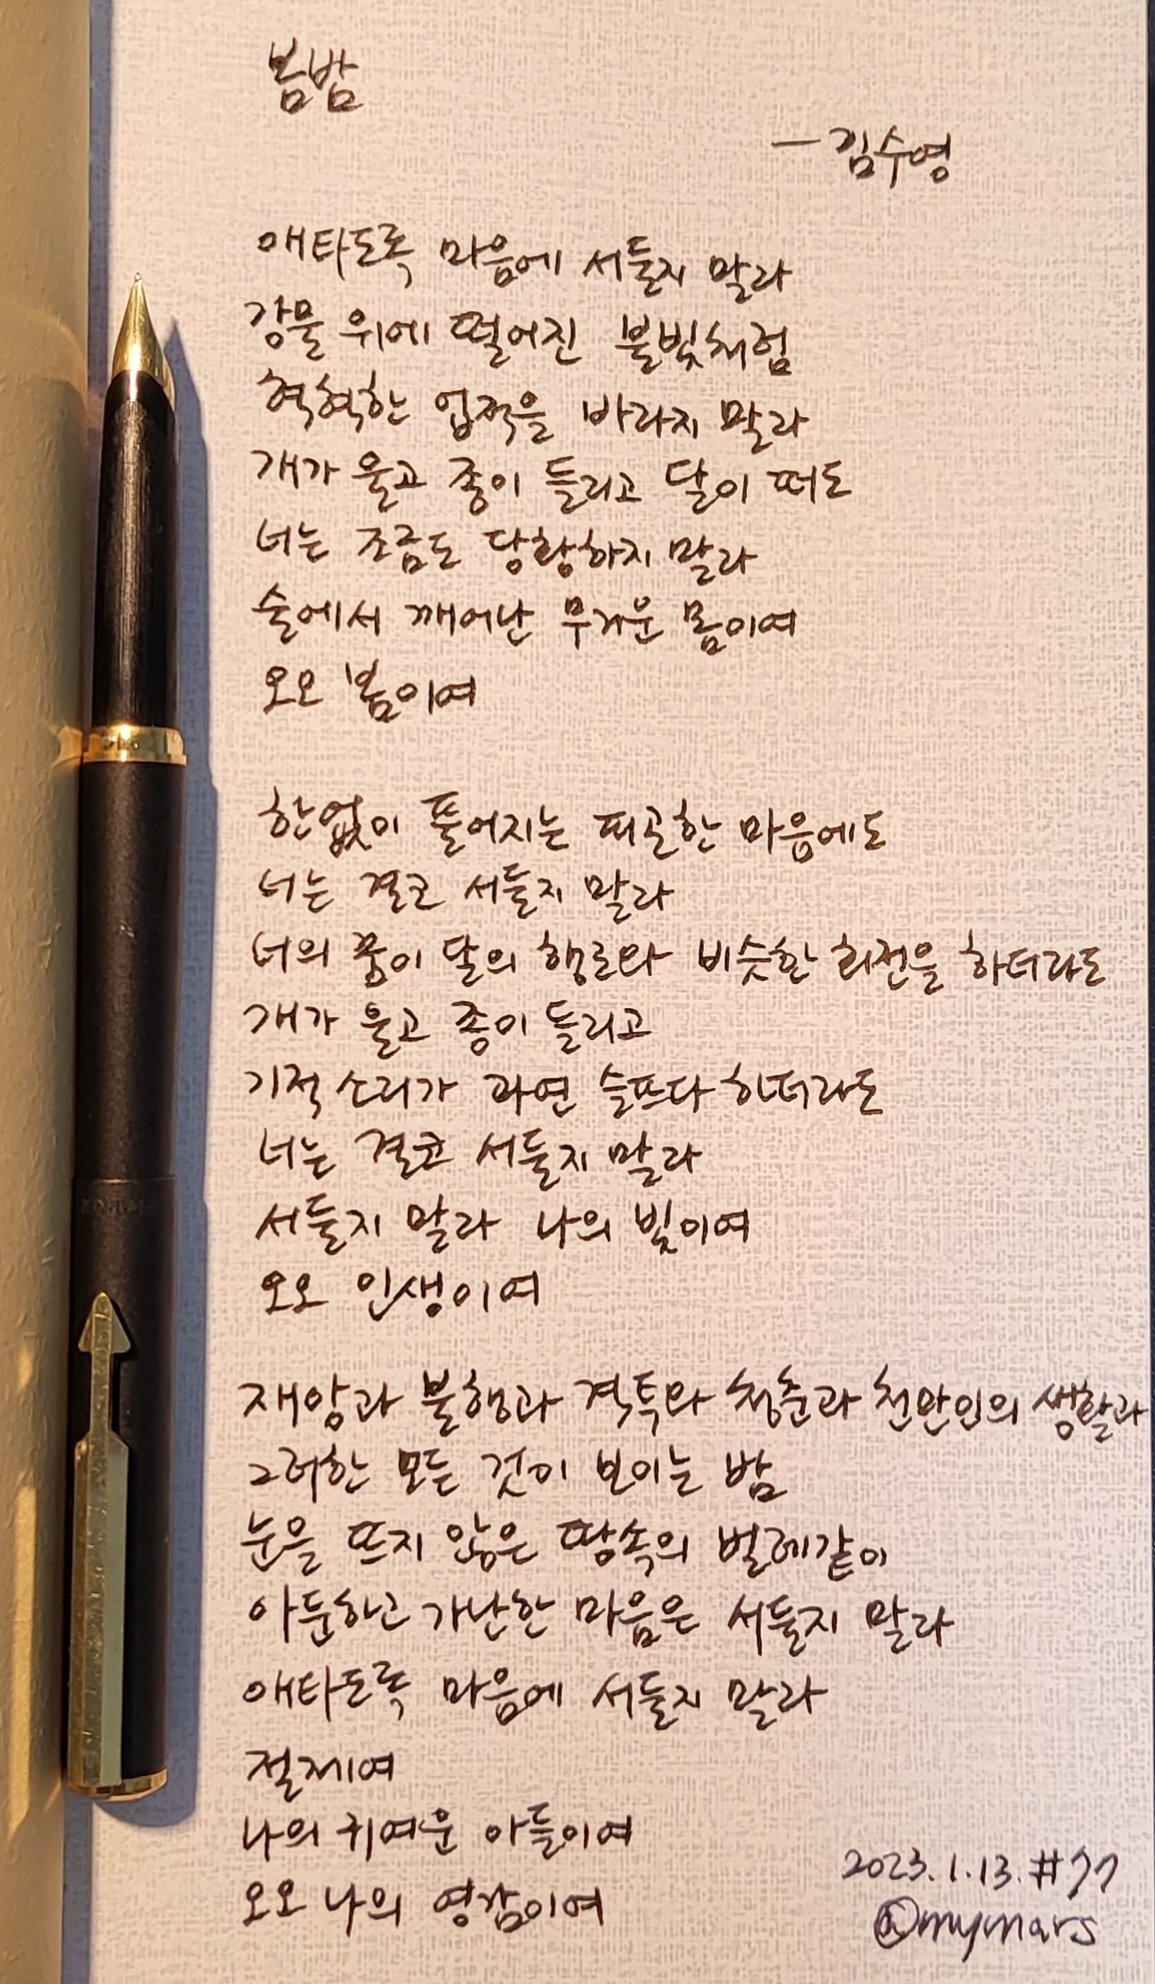 봄밤
－김수영
애타도록 마음에 서둘지 말라
강물 위에 떨어진 불빛처럼
혁혁한 업적을 바라지 말라
개가 울고 종이 들리고 달이 떠도
너는 조금도 당황하지 말라
술에서 깨어난 무거운 몸이여
오오 봄이여
한없이 풀어지는 피곤한 마음에도
너는 결코 서둘지 말라
너의 꿈이 달의 행로와 비슷한 회전을 하더라도
개가 울고 종이 들리고
기적 소리가 과연 슬프다 하더라도
너는 결코 서둘지 말라
서둘지 말라 나의 빛이여
오오 인생이여
재앙과 불행과 격투와 청춘과 천만인의 생활과
그러한 모든 것이 보이는 밤
눈을 뜨지 않은 땅속의 벌레같이
아둔하고 가난한 마음은 서둘지 말라
애타도록 마음에 서둘지 말라
절제여
나의 귀여운 아들이여
오오 나의 영감이여
2023.1.13.#77
@mymars